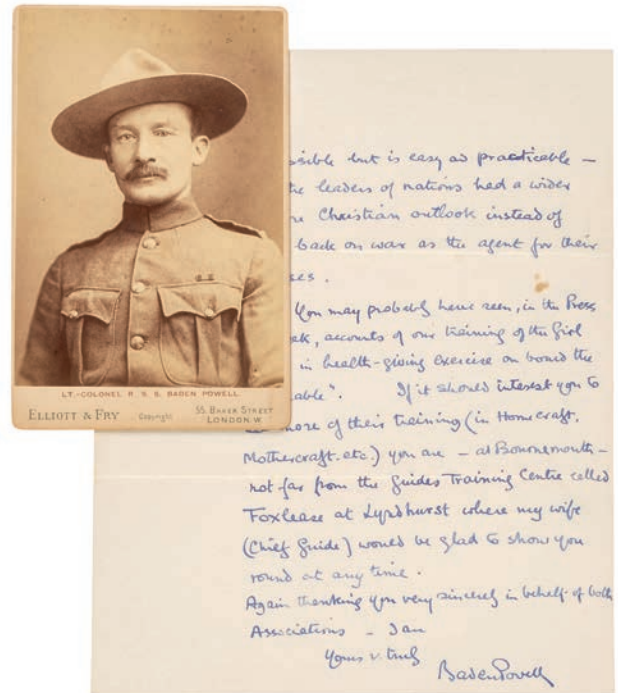 LT.-COLONEL R. S. S. BADEN POWELL.
ELLIOTT & FRY Copyright 55, BAKER STREET
LONDON. W.
sible but is easy as practicable –
he leaders of nations had a wider
re Christian outlook instead of
back on war as the agent for their
es.
You may probably have seen, in the Press
ek, accounts of our training of the Girl
in health-giving exercise on board the
able". If it should interest you to
more of their training (in Homecraft,
Mothercraft. etc.) you are – at Bournemouth –
not far from the Guides Training Centre called
Foxlease at Lyndhurst where my wife
(Chief Guide) would be glad to show you
round at any time.
Again thanking you very sincerely in behalf of both
Associations – I am
Yours v. truly
Baden Powell